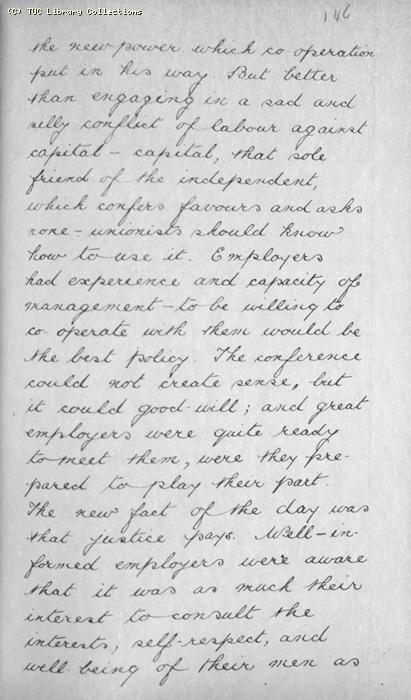 (C) TUC Library Collections
146
the new power which co-operation
put in his way. But better
than engaging in a sad and
silly conflict of labour against
capital – capital, that sole
friend of the independent,
which confers favours and asks
none – unionists should know
how to use it. Employers
had experience and capacity of
management – to be willing to
co-operate with them would be
the best policy. The conference
could not create sense, but
it could good-will; and great
employers were quite ready
to meet them, were they pre-
pared to play their part.
The new fact of the day was
that justice pays. Well-in-
formed employers were aware
that it was as much their
interest to consult the
interests, self-respect, and
well-being of their men as